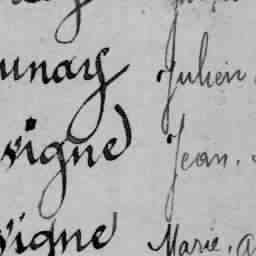 unay Julien
vigne Jean.
vigne Marie. a